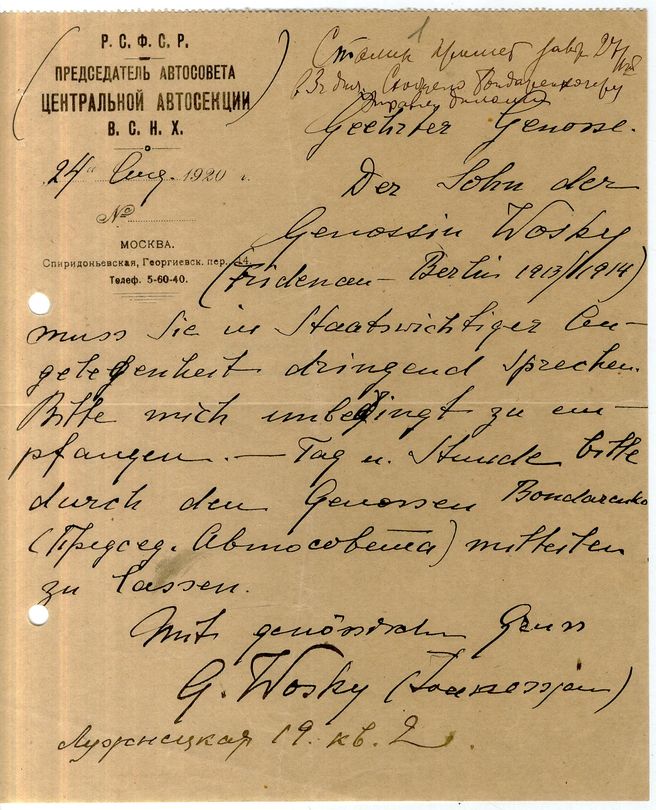 Р. С. Ф. С. Р.
ПРЕДСЕДАТЕЛЬ АВТОСОВЕТА
ЦЕНТРАЛЬНОЙ АВТОСЕКЦИИ
В. С. Н. Х.
24 Aug. 1920 г.
№
МОСКВА.
Спиридоньевская, Георгиевск. пер., 14.
Телеф. 5-60-40.
1
Сталин примет завтра 27/VIII
Geehrter Genosse.
Der Sohn der
Genossin Wosky
(Fridenau - Berlin 1913/1914)
muss Sie in Staatswichtiger An-
gelegenheit dringend sprechen.
Bitte mich unbedingt zu em-
pfangen. — Tag u. Stunde bitte
durch den Genossen Bondarenko
(Председ. Автосовета) mitteilen
zu lassen.
Mit genössischen Gruss
G. Wosky
Лужнецкая 19. кв. 2.